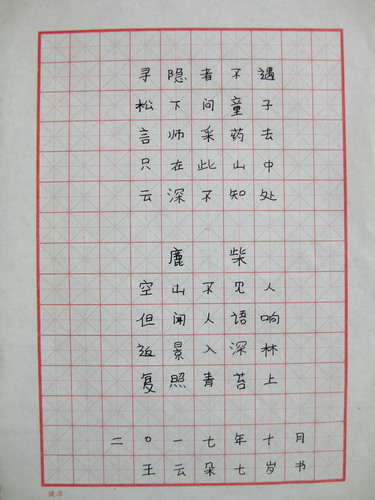 寻隐者不遇
松下问童子
言师采药去
只在此山中
云深不知处
鹿柴
空山不见人
但闻人语响
返景入深林
复照青苔上
二〇一七年十月
王云朵七岁书